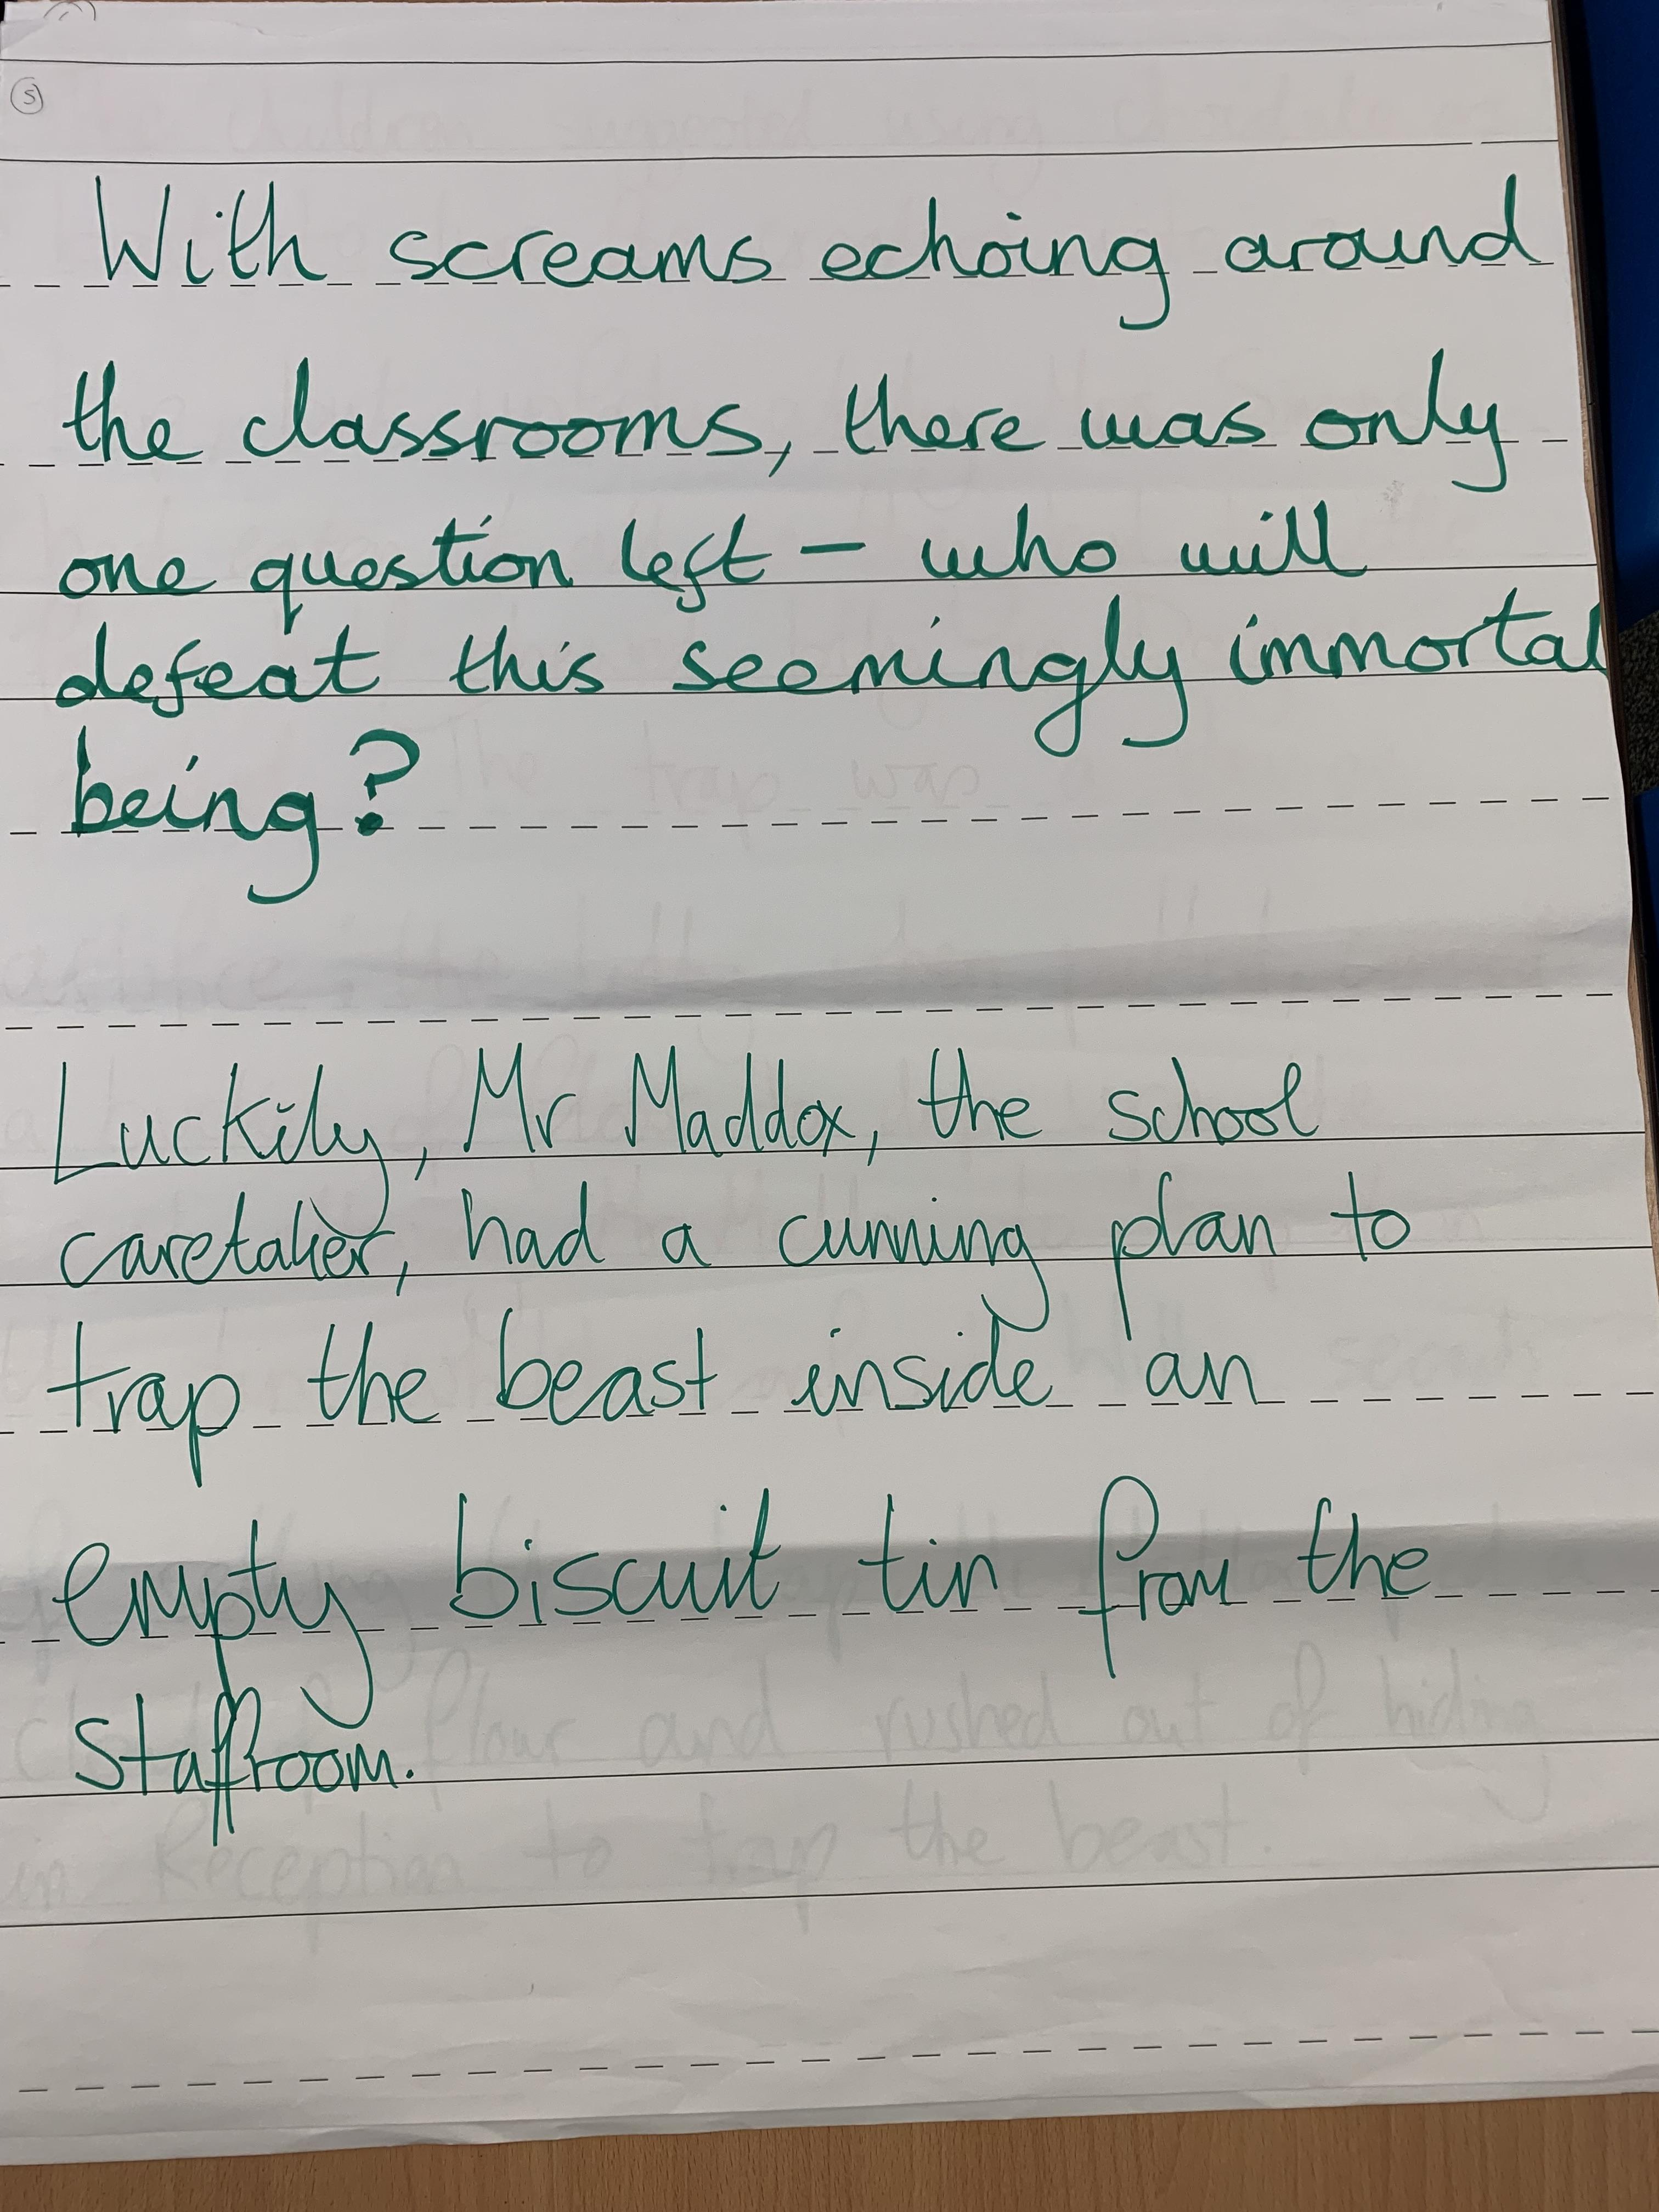 5
With screams echoing around
the classrooms, there was only
one question left – who will
defeat this seemingly immortal
being?
Luckily, Mr Maddox, the school
caretaker, had a cunning plan to
trap the beast inside an
empty biscuit tin from the
staffroom.
flour and rushed out of hiding
in Reception to trap the beast.